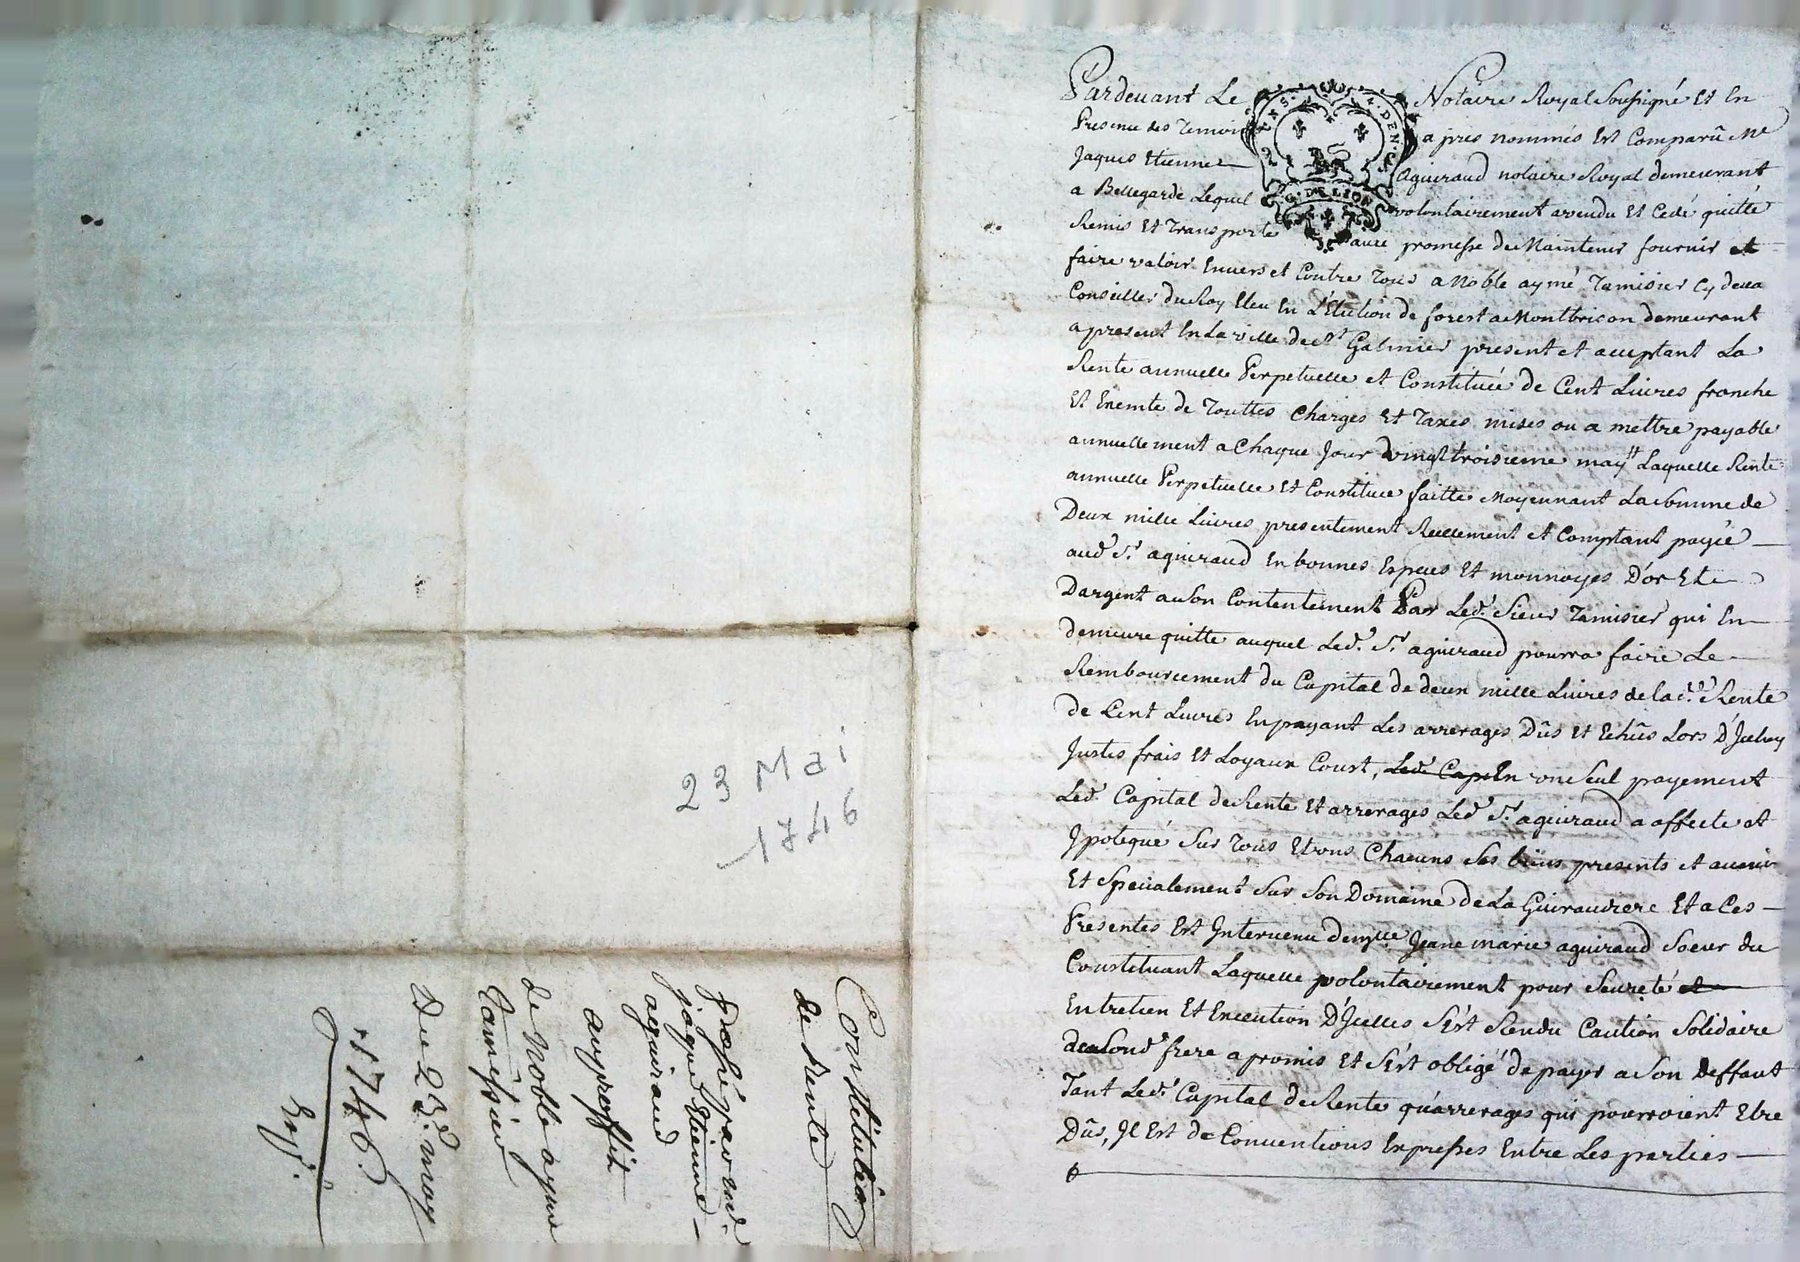 23 Mai
1746
Constitution
de Rente
passé par md.
jaque Etienne
aguiraud
au proffit
de Noble ayme
Tamissier
Du 23.e may
1746.
Exp.
G. DE LION
Pardevant Le Notaire Royal Soussigné Et En
Presence des Temoins apres nommés Est Comparû Me
Jaques Etienne Aguiraud notaire Royal demeurant
a Bellegarde Lequel volontairement avendu Et Cedé quitté
Remis Et Transporté avec promesse de Maintenir fournir et
faire valoir Envers et Contre Tous a Noble aymé Tamisier Cy deva
Conseiller du Roy Eleu En L'Election de forest a Montbrison demeurant
apresent En La ville de St Galmier present et acceptant La
Rente annuelle Perpetuelle et Constituée de Cent Livres franche
Et Exemte de Touttes Charges Et Taxes mises ou a mettre payable
annuellement a Chaque Jour vingt troisieme may Laquelle Rente
annuelle Perpetuelle Et Constituée faitte Moyennant La Somme de
Deux mille Livres presentement Reellement et Comptant payée
aud. Sr. aguiraud En bonnes Especes Et monnoyes D'or Et
Dargent a Son Contentement Par Led. Sieur Tamisier qui En
demeure quitte auquel Led. Sr. aguiraud pourra faire Le
Remboursement du Capital de deux mille Livres de lad. Rente
de Cent Livres En payant Les arrerages Dûs Et Echûs Lors D'Jceluy
Justes frais Et Loyaux Court, Led. Cap En une Seul payement
Led. Capital de Rente Et arrerages Led. Sr. aguiraud a affecté et
Jpotequé Sur Tous Et uns Chacuns Ses biens presents et avenir
Et Specialement Sur Son Domaine de La Guiraudiere Et a Ces
Presentes Est Intervenu demlle Jeane marie aguiraud Soeur du
Constituant Laquelle volontairement pour Seureté et
Entretien Et Execution D'Jcelles S'est Rendu Caution Solidaire
de Sond. frere a promis Et S'est obligé de payer a Son Deffaut
Tant Led. Capital de Rente qu'arrerages qui pourroient Etre
Dûs, Jl Est de Conventions Expresses Entre Les parties